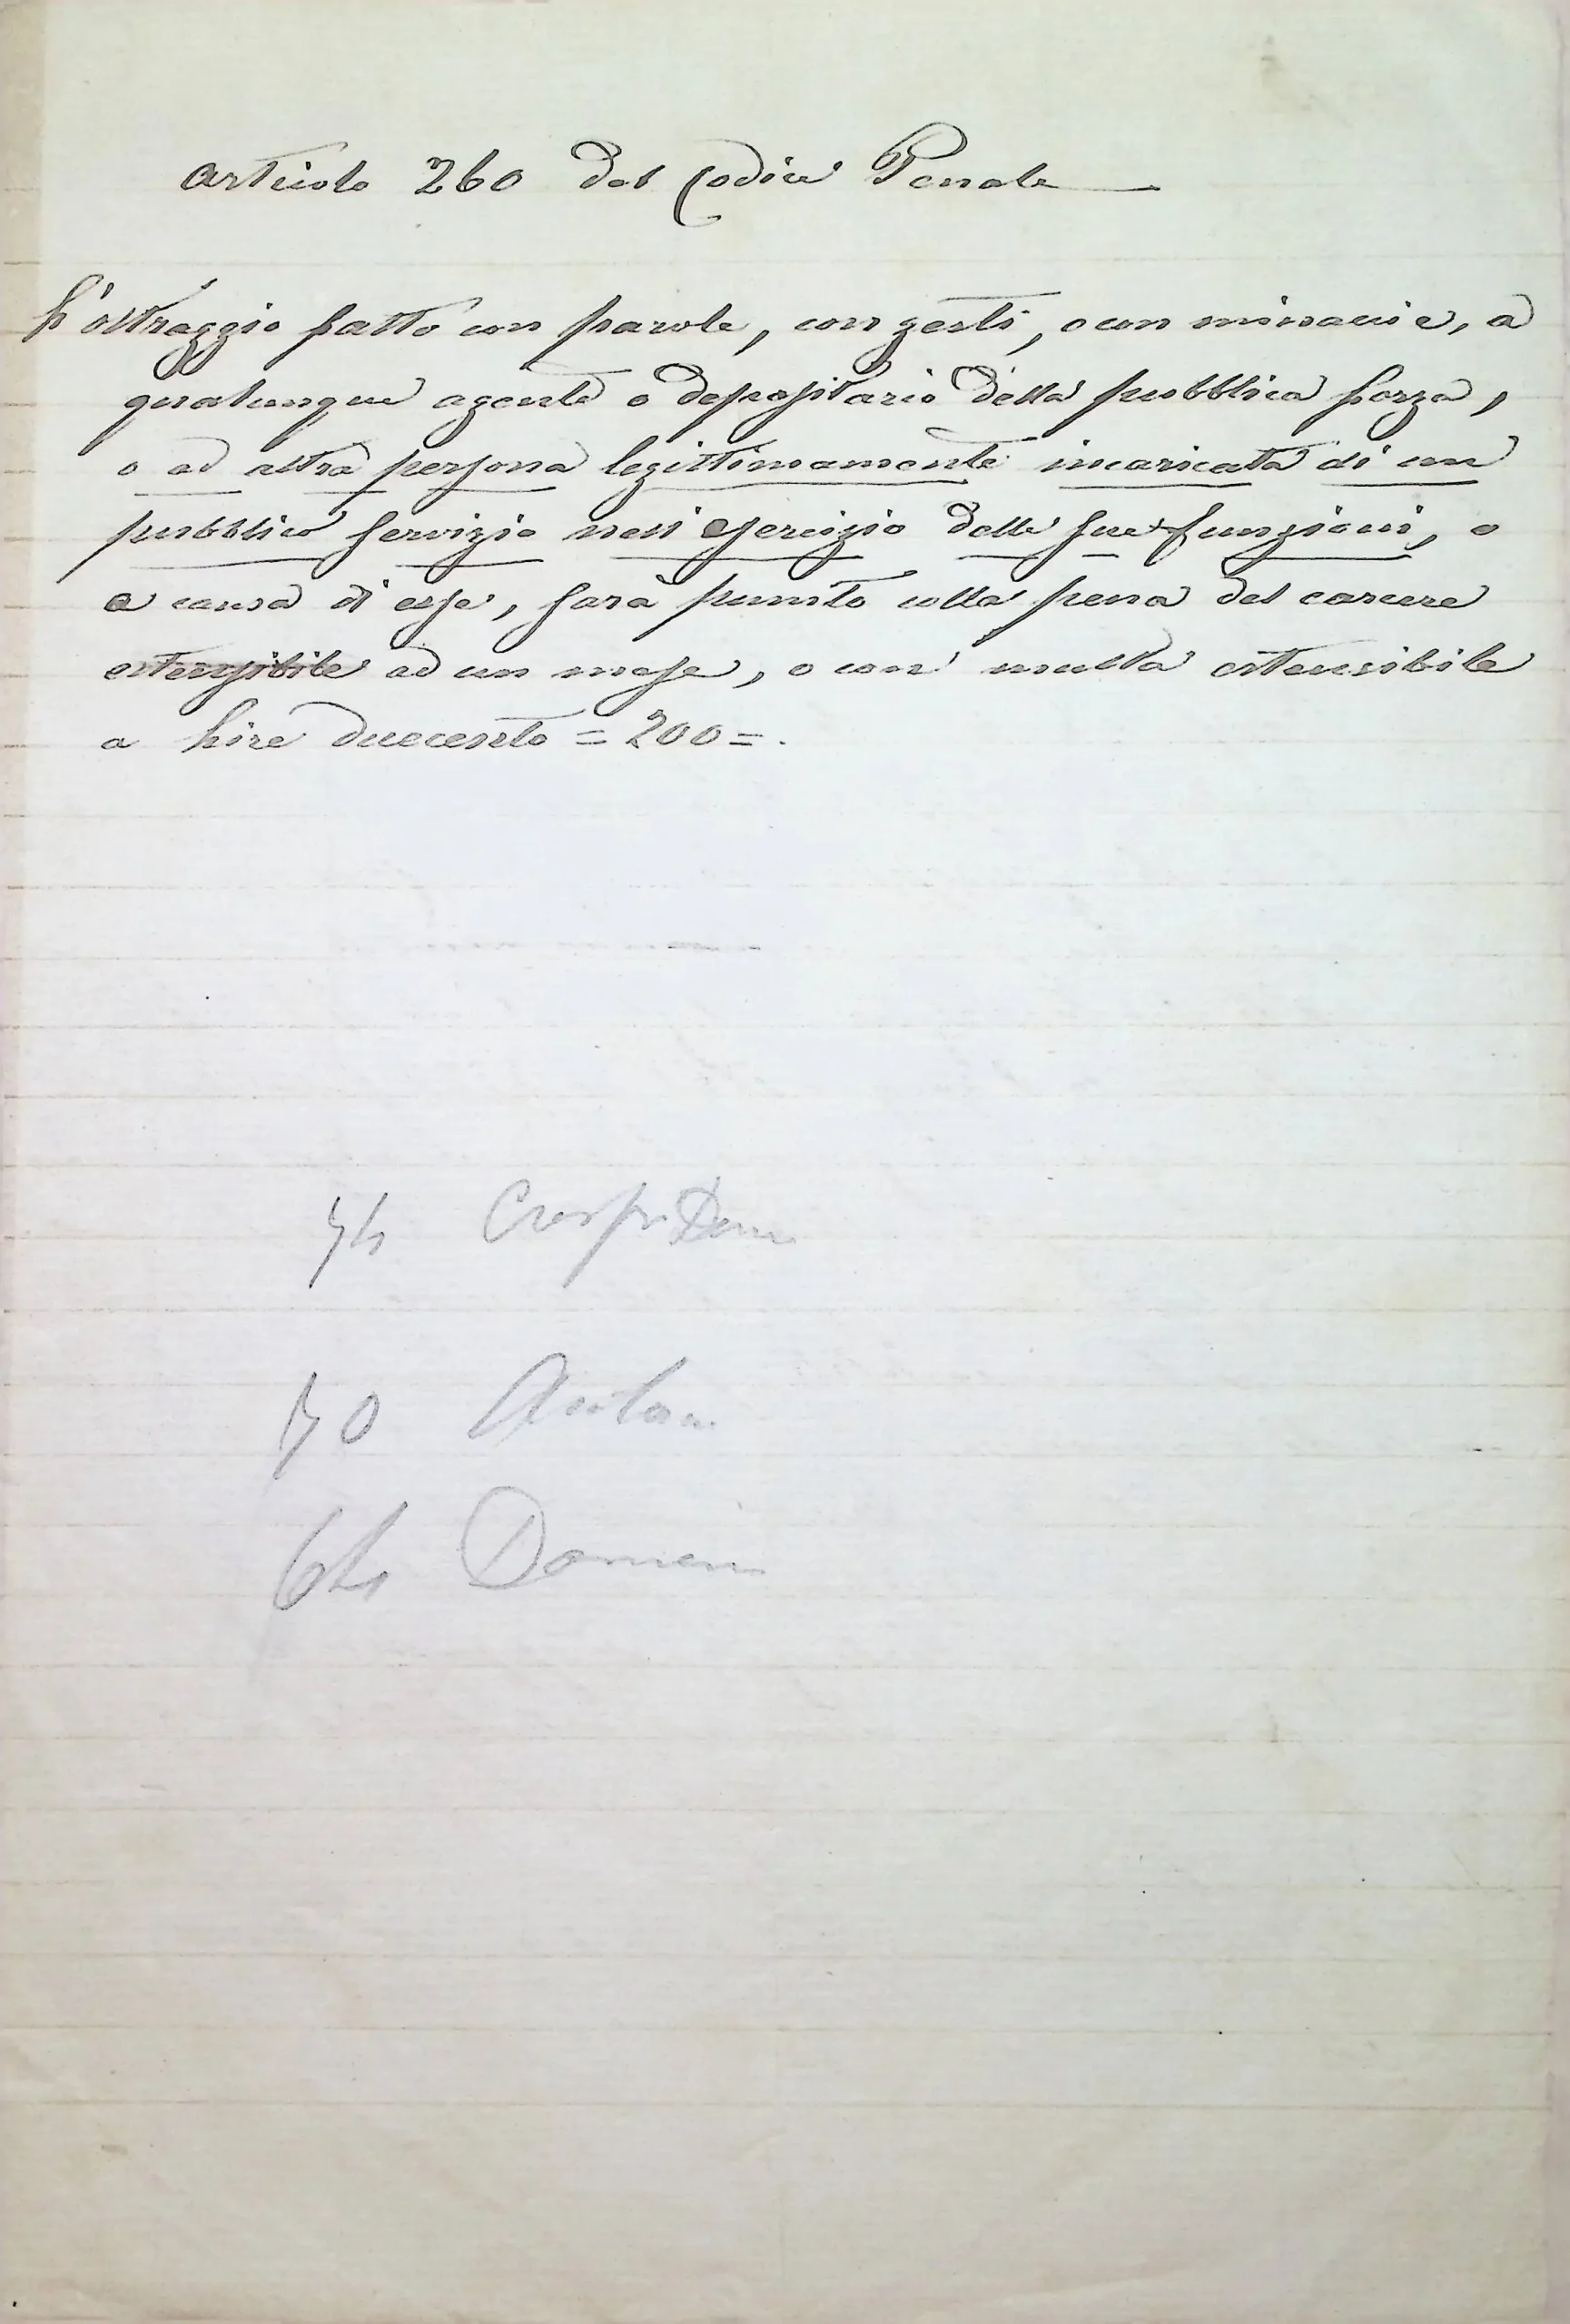 Articolo 260 del Codice Penale
L'oltraggio fatto con parole, con gesti, o con minaccie, a
qualunque agente o depositario della pubblica forza,
o ad altra persona legittimamente incaricata di un
pubblico servizio nell'esercizio delle sue funzioni, o
a causa di esse, sarà punito colla pena del carcere
estensibile ad un mese, o con multa estensibile
a Lire duecento = 200 = .
Crespi Dom
70
Domen